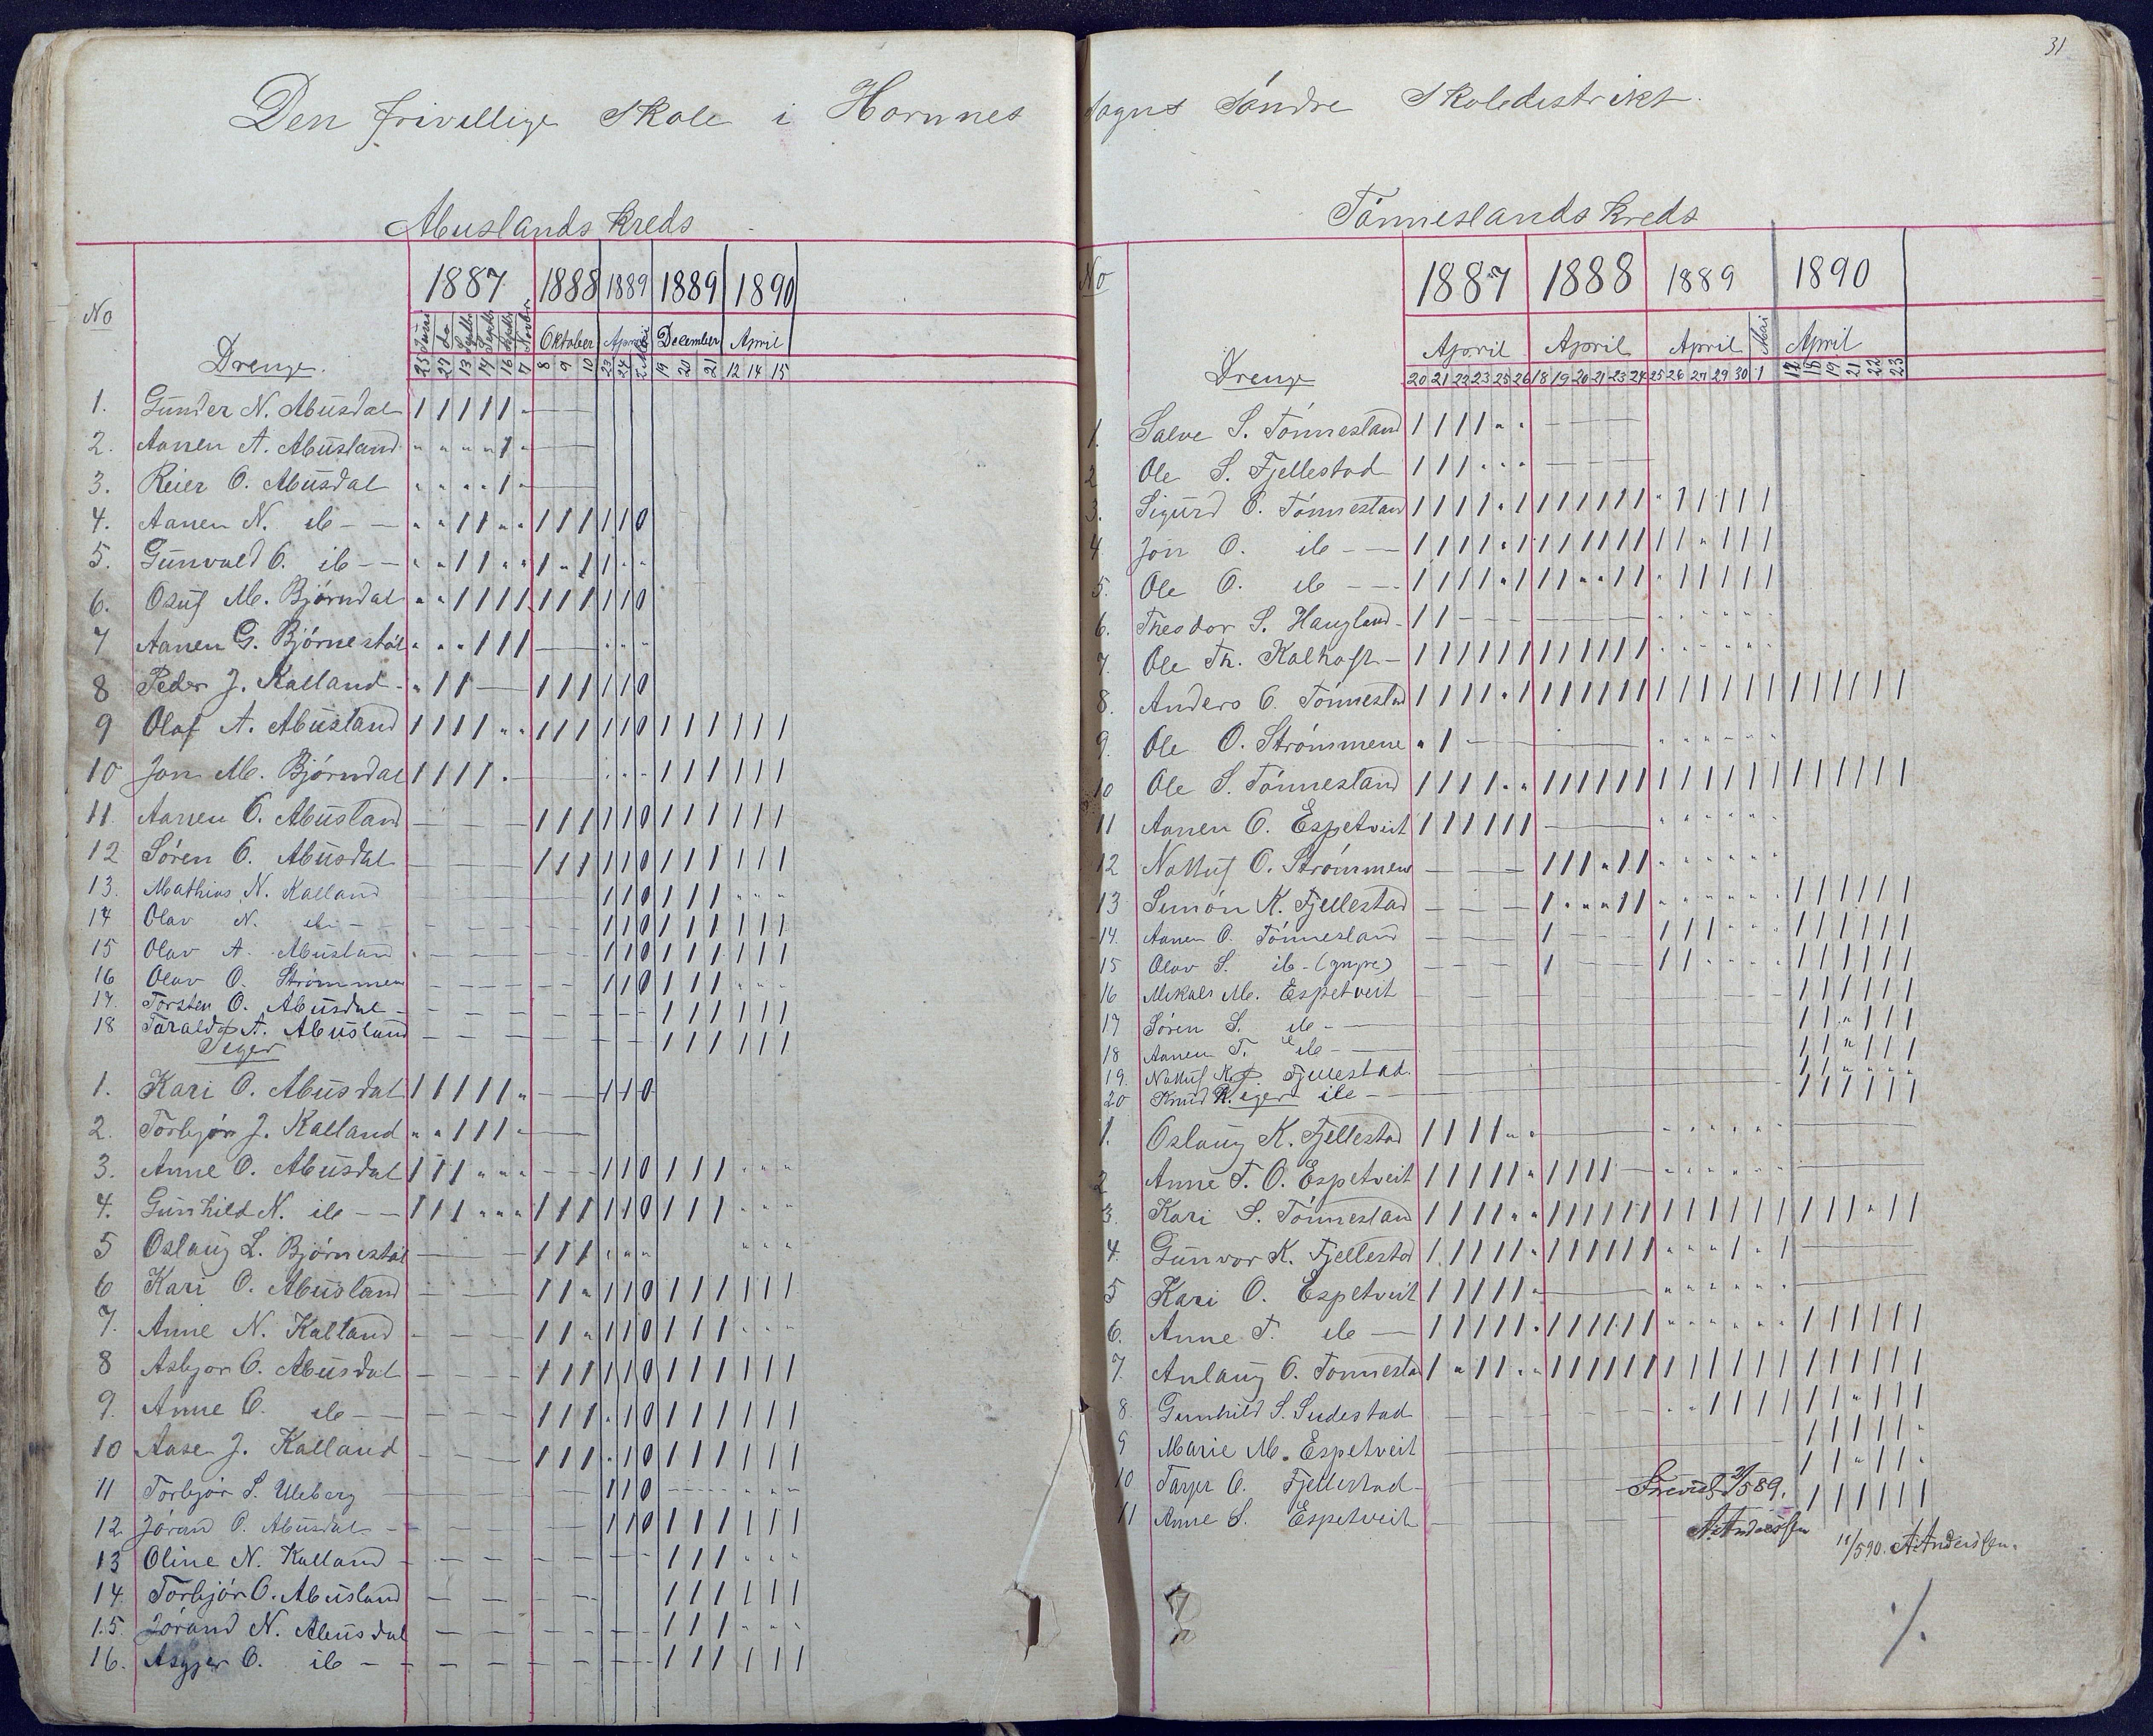 31
Den frivillige Skole i Hornnes Sogns Søndre Skoledistrikt.
Abuslands Kreds
No 1887 1888 1889 1889 1890
25 Juni 27 Do 13 Septbr 14 Septbr 16 Septbr 7 Novbr Oktober 8 9 10 April 23 24 2 Mai December 19 20 21 April 12 14 15
Drenge.
1. Gunder N. Abusdal 1 1 1 1 1 "
2. Aanen A. Abusland " " " " 1 "
3. Reier O. Abusdal " " " " 1 "
4. Aanen N. ib - — " " 1 1 " " 1 1 1 1 1 0
5. Gunvald O. ib - — " " 1 1 " " 1 " 1 1 " "
6. Osuf M. Bjørndal " " 1 1 1 1 1 1 1 1 1 0
7 Aanen G. Bjørnestøl " " " 1 1 1 — " " "
8 Peder J. Kalland - " 1 1 — 1 1 1 1 1 0
9 Olaf A. Abusland 1 1 1 1 " " 1 1 1 1 1 0 1 1 1 1 1 1
10 Jon M. Bjørndal 1 1 1 1 " — " " " 1 1 1 1 1 1
11. Aanen O. Abusland — — — 1 1 1 1 1 0 1 1 1 1 1 1
12 Søren O. Abusdal — — — 1 1 1 1 1 0 1 1 1 1 1 1
13. Mathias N. Kalland 1 1 0 1 1 1 " " "
14 Olav N. ib - 1 1 0 1 1 1 1 1 1
15 Olav A. Abusland 1 1 0 1 1 1 1 1 1
16 Olav O. Strømmen 1 1 0 1 1 1 " " "
17. Torsten O. Abusdal - 1 1 1 1 1 1
18. Tarald A. Abusland 1 1 1 1 1 1
Piger
1. Kari O. Abusdal 1 1 1 1 1 " — 1 1 0
2. Torbjør J. Kalland " " 1 1 1 " —
3. Anne O. Abusdal 1 1 1 " " " - - - 1 1 0 1 1 1 " " "
4. Gunhild N. ib - — 1 1 1 " " " 1 1 1 1 1 0 1 1 1 " " "
5 Oslaug L. Bjørnestøl — — 1 1 1 " " " " " "
6 Kari O. Abusland — — 1 1 " 1 1 0 1 1 1 1 1 1
7. Anne N. Kalland - — — 1 1 " 1 1 0 1 1 1 " " "
8 Asbjør O. Abusdal - — — 1 1 1 1 1 0 1 1 1 1 1 1
9. Anne O. ib - — 1 1 1 " 1 0 1 1 1 1 1 1
10 Aase J. Kalland 1 1 1 " 1 0 1 1 1 1 1 1
11 Torbjør S. Uleberg 1 1 0 - - - " " "
12. Jørand O. Abusdal - 1 1 0 1 1 1 1 1 1
13 Oline N. Kalland 1 1 1 " " "
14. Torbjør O. Abusland 1 1 1 1 1 1
15. Jørand N. Abusdal 1 1 1 " " "
16. Asgjer O. ib - 1 1 1 1 1 1
Tønneslands Kreds
No 1887 1888 1889 1890
April April April Mai April
Drenge 20 21 22 23 25 26 18 19 20 21 23 24 25 26 27 29 30 1 17 18 19 21 22 23
1. Salve S. Tønnesland 1 1 1 1 " " — — —
2 Ole S. Fjellestad 1 1 1 " " " — — —
3. Sigurd O. Tønnesland 1 1 1 1 " 1 1 1 1 1 1 1 " 1 1 1 1 1
4 Jon O. ib - — 1 1 1 1 " 1 1 1 1 1 1 1 1 1 " 1 1 1
5. Ole O. ib — - 1 1 1 1 " 1 1 1 " " 1 1 " 1 1 1 1 1
6. Theodor S. Haugland - 1 1 — - - — " " " " " "
7. Ole Th. Kalhoft — 1 1 1 1 1 1 1 1 1 1 1 1 " " " " " "
8. Anders O. Tønnesland 1 1 1 1 " 1 1 1 1 1 1 1 1 1 1 1 1 1 1 1 1 1 1 1
9. Ole O. Strømmene " 1 — — " " " " " "
10 Ole S. Tønnesland 1 1 1 1 " " 1 1 1 1 1 1 1 1 1 1 1 1 1 1 1 1 1 1
11 Aanen O. Espetveit 1 1 1 1 1 1 — " " " " " "
12 Notluf O. Strømmen — — — 1 1 1 " 1 1 " " " " " "
13 Simon K. Fjellestad — — — 1 " " " 1 1 " " " " " " 1 1 1 1 1 1
14. Aanen O. Tønnesland — — — 1 - - - 1 1 1 " " " 1 1 1 1 1 1
15 Olav S. ib - (yngre) — — — 1 — — 1 1 " " " " 1 1 1 1 1 1
16 Mikals M. Espetveit 1 1 1 1 1 1
17 Søren S. ib - — 1 1 " 1 1 1
18 Aanen T. ib - — 1 1 " 1 1 1
19. Notluf K. Fjellestad. 1 1 " " " "
20 Knud K. ib - 1 1 1 1 1 1
Piger
1. Oslaug K. Fjellestad 1 1 1 1 " " — " " " " " " —
2 Anne T. O. Espetveit 1 1 1 1 1 " 1 1 1 1 — " " " " " " —
3. Kari S. Tønnesland 1 1 1 1 " " 1 1 1 1 1 1 1 1 1 1 1 1 1 1 1 " 1 1
4. Gunvor K. Fjellestad 1 1 1 1 1 " 1 1 1 1 1 1 " " " 1 " 1 —
5 Kari O. Espetveit 1 1 1 1 1 " — " " " " " " —
6. Anne T. ib — 1 1 1 1 1 " 1 1 1 1 1 1 " " " " " " 1 1 1 1 1 1
7. Anlaug O. Tønnesland 1 " 1 1 " " 1 1 1 1 1 1 1 1 1 1 1 1 1 1 1 1 1 1
8. Gunhild S. Sudestad " " 1 1 1 1 1 1 " 1 1 1
9 Marie M. Espetveit 1 1 1 1 1 "
10 Tarjer O. Fjellestad - 1 1 " 1 1 "
11 Anne S. Espetveit 1 1 1 1 1 1
589.
A. Anderssen
11/5 90. A. Anderssen.